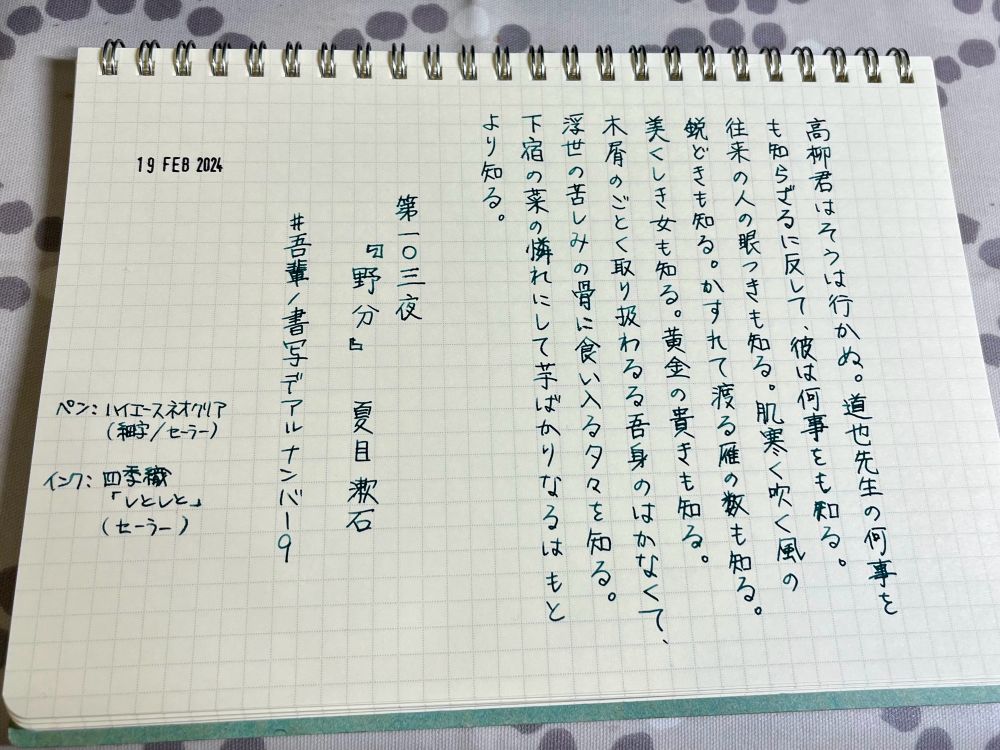 高柳君はそうは行かぬ。道也先生の何事を
も知らざるに反して、彼は何事をも知る。
往来の人の眼つきも知る。肌寒く吹く風の
鋭どきも知る。かすれて渡る雁の数も知る。
美くしき女も知る。黄金の貴きも知る。
木屑のごとく取り扱わるる吾身のはかなくて、
浮世の苦しみの骨に食い入る夕々を知る。
下宿の菜の憐れにして芋ばかりなるはもと
より知る。
第一〇三夜
『野分』 夏目漱石
#吾輩ノ書写デアルナンバー9
19 FEB 2024
ペン:ハイエースネオクリア
(細字/セーラー)
インク:四季織
「しとしと」
(セーラー)